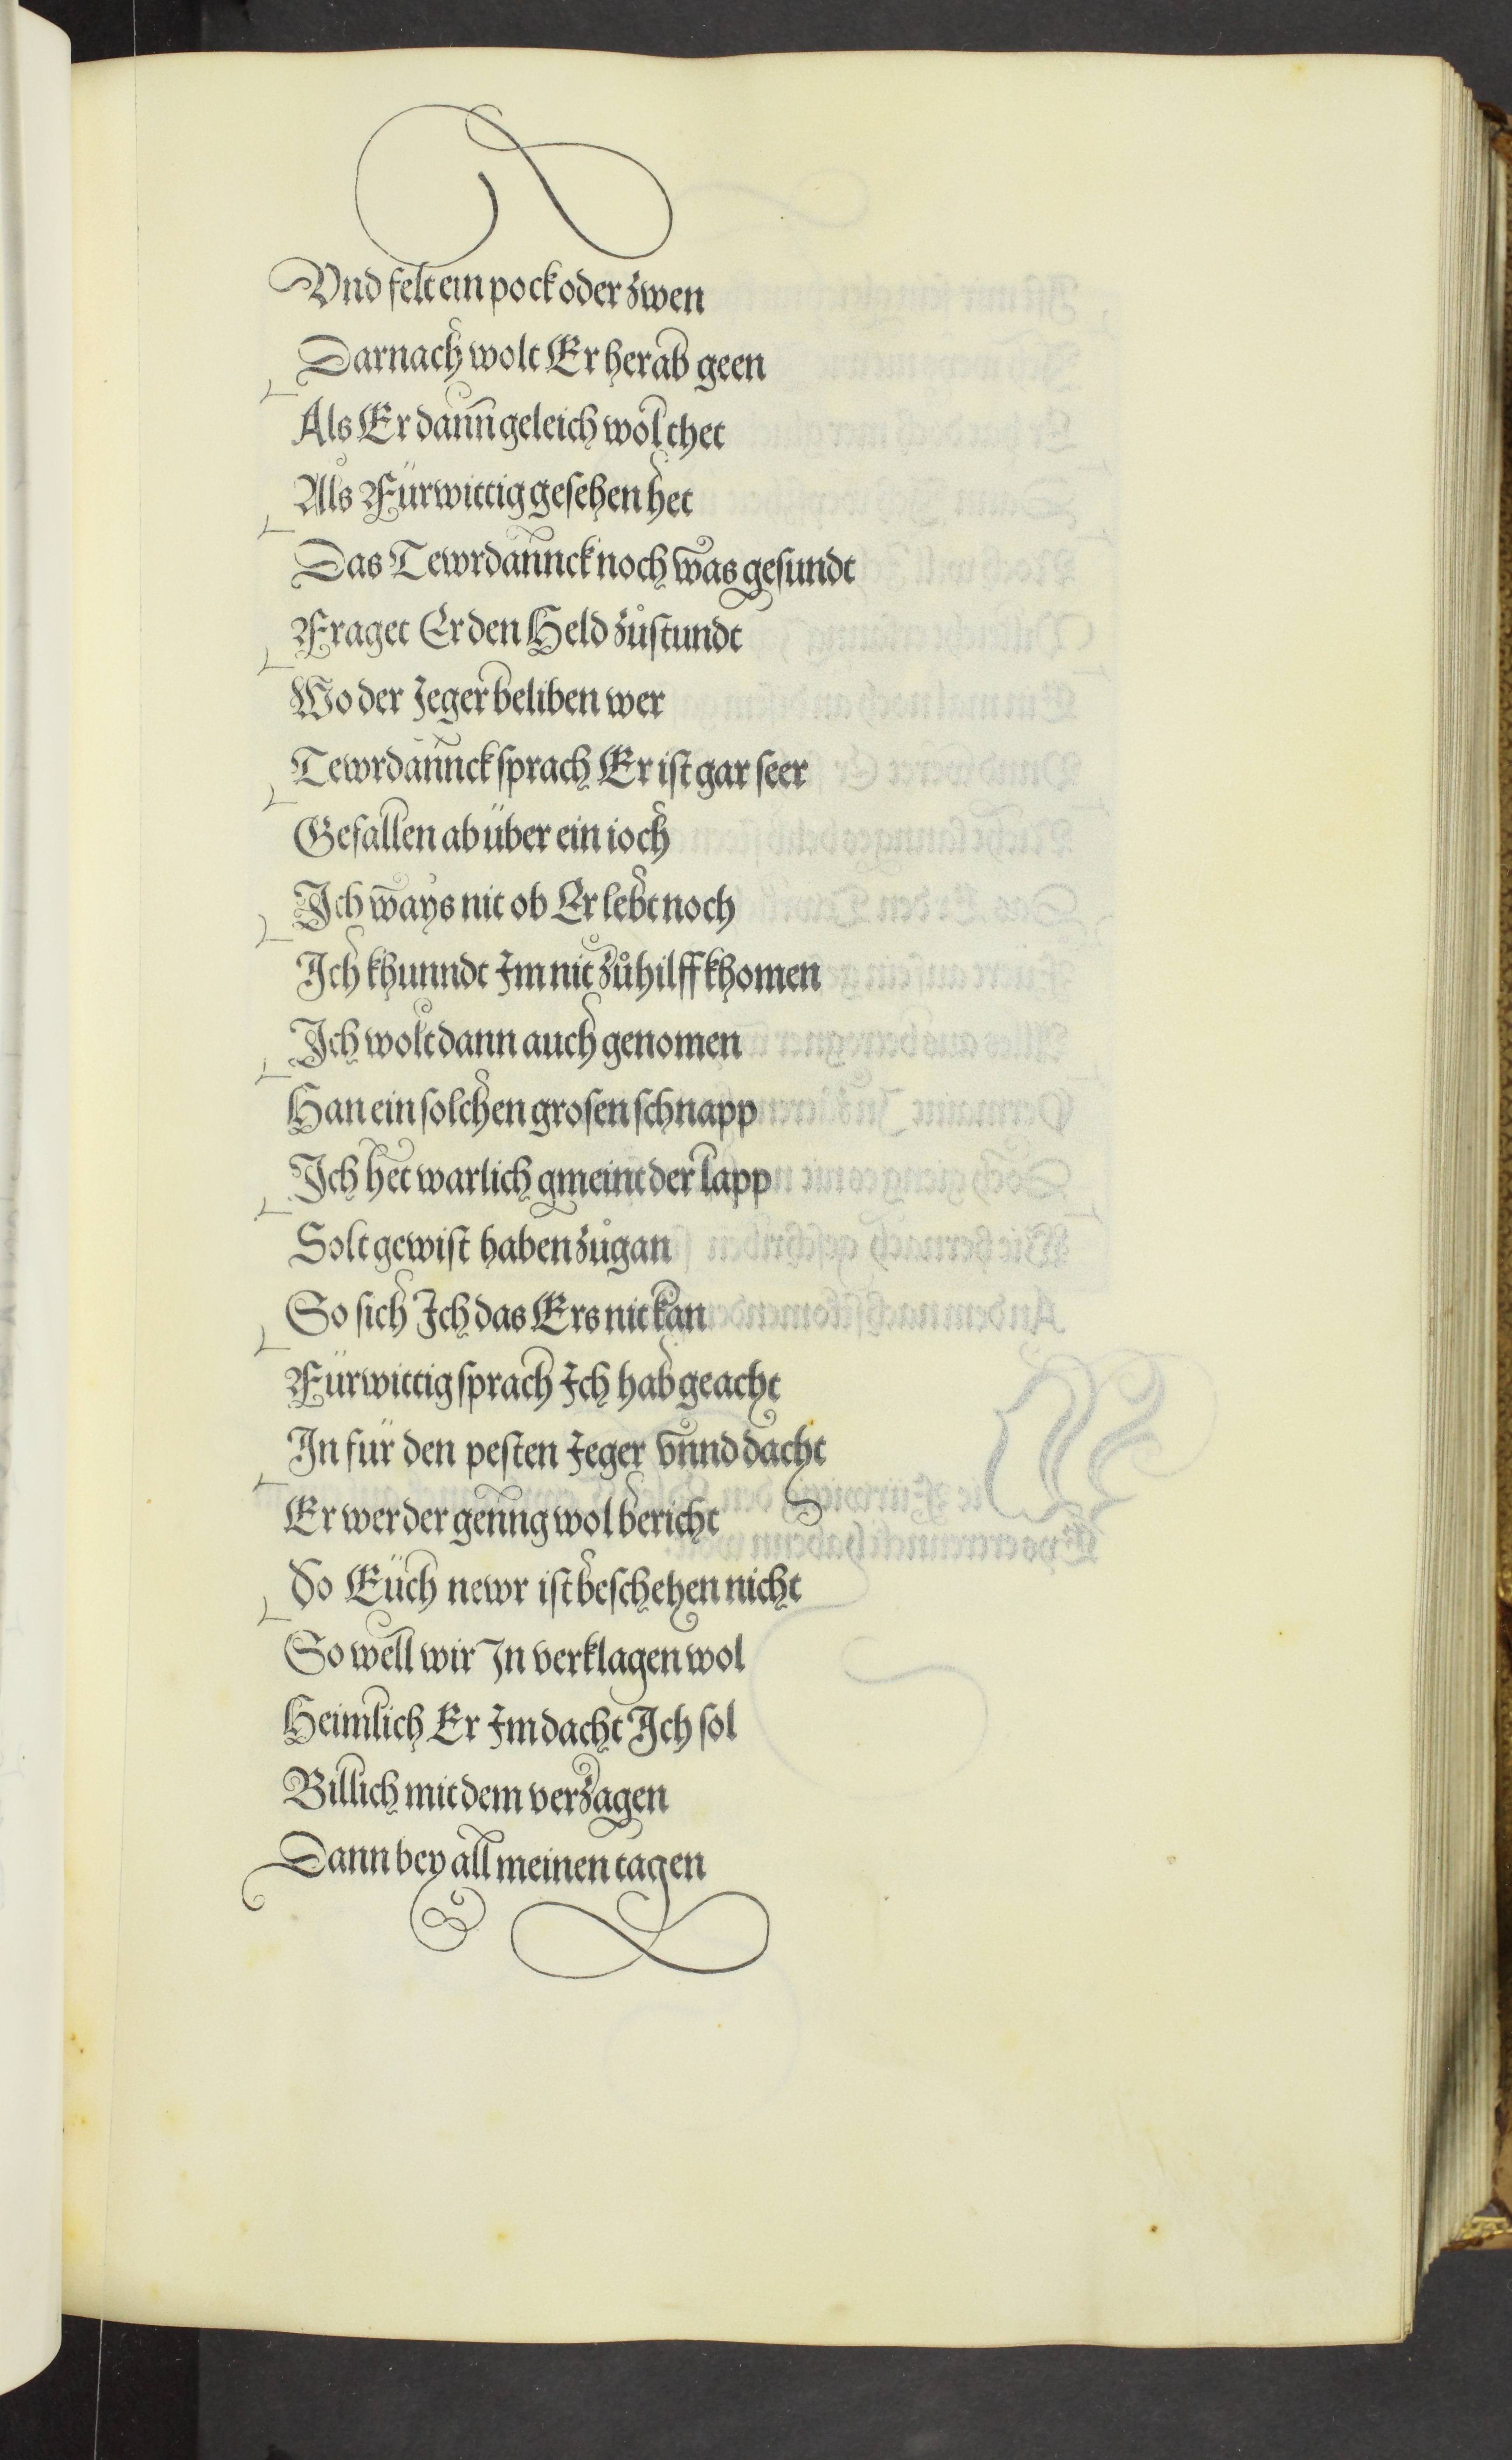 Vnd felt ein pock oder zwen
Darnach wolt Er herab geen
Als Er dann geleich wol thet
Als Fürwittig gesehen het
Das Tewrdannck noch was gesundt
Fraget Er den Held zůstundt
Wo der Jeger beliben wer
Tewrdannck sprach Er ist gar seer
Gefallen ab über ein ioch
Ich ways nit ob Er lebt noch
Ich khunndt Im nit zů hilff khomen
Ich wolt dann auch genomen
Han ein solchen grosen schnapp
Ich het warlich gmeint der lapp
Solt gewist haben zůgan
So sich Ich das Ers nit kan
Fürwittig sprach Ich hab geacht
In für den pesten Jeger vnnd dacht
Er wer der genng wol bericht
So Eüch newr ist beschehen nicht
So well wir In verklagen wol
Heimlich Er Im dacht Ich sol
Billich mit dem verzagen
Dann bey all meinen tagen